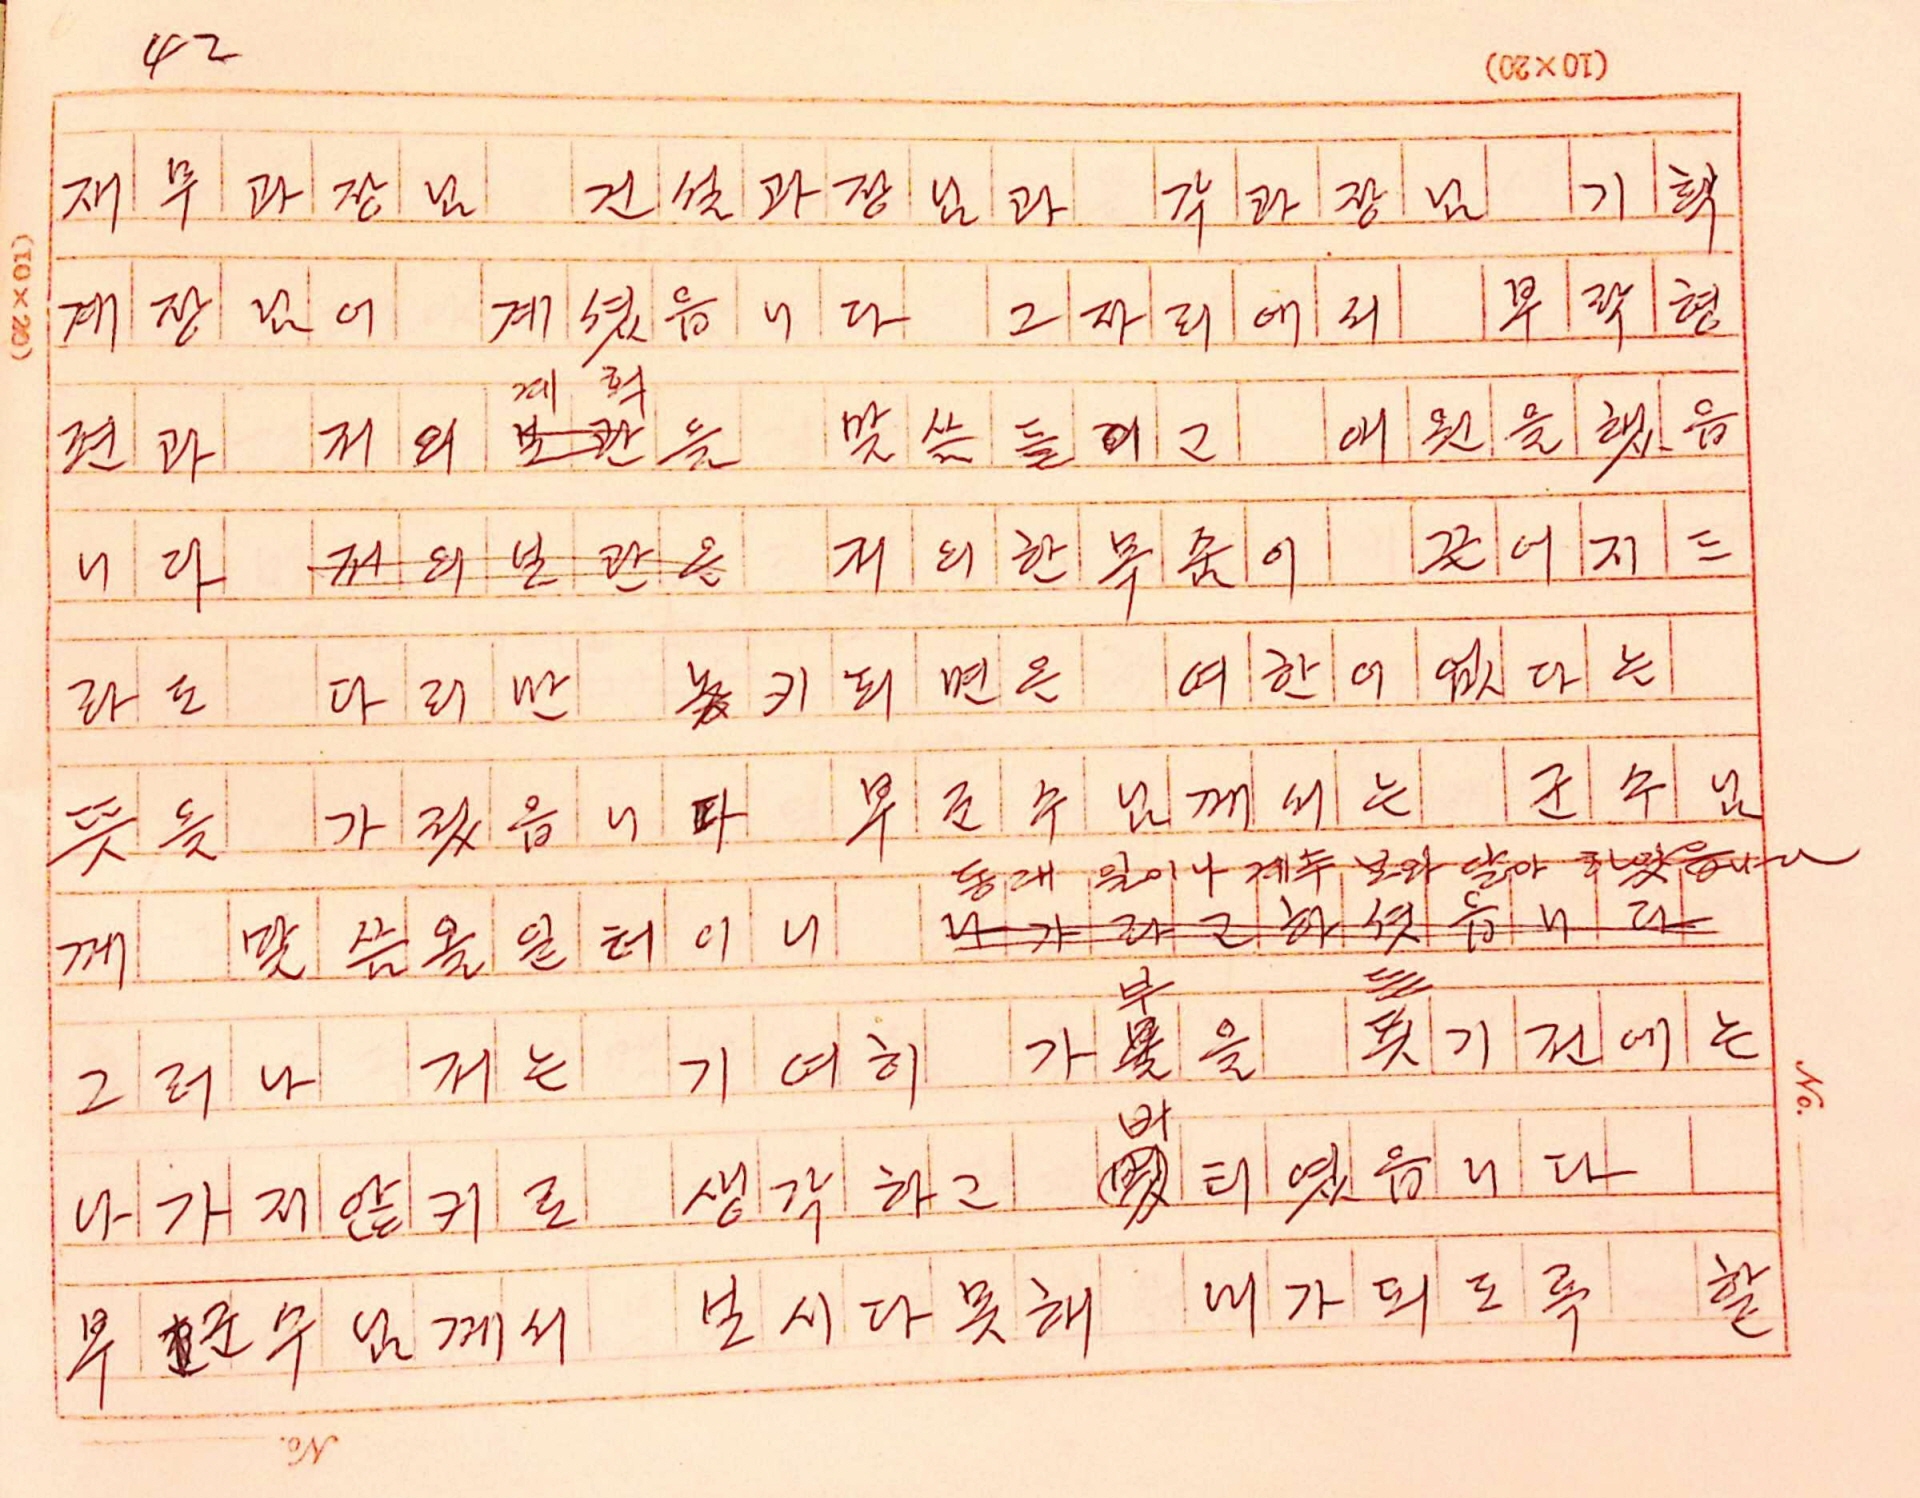 42
(10×20)
재무과장님 건설과장님과 각과장님 기획
(10×20)
계장님이 계셨읍니다 그자리에서 부락형
계획
편과 저의 보관을 맞씀들이고 애원을했읍
니다 저의보관은 저의한목숨이 끈어지드
라도 다리만 놓키되면은 여한이없다는
뜻을 가젔읍니다 부군수님께서는 군수님
동대 일이나 계속 보와 달아 하였읍니다
께 맞씀올일터이니 나가라고하셧읍니다
부
그러나 저는 기여히 가을 뜻기전에는
No.
버
나가지않키로 생각하고 티였읍니다
부군수님께서 보시다못해 내가되도록 할
No.